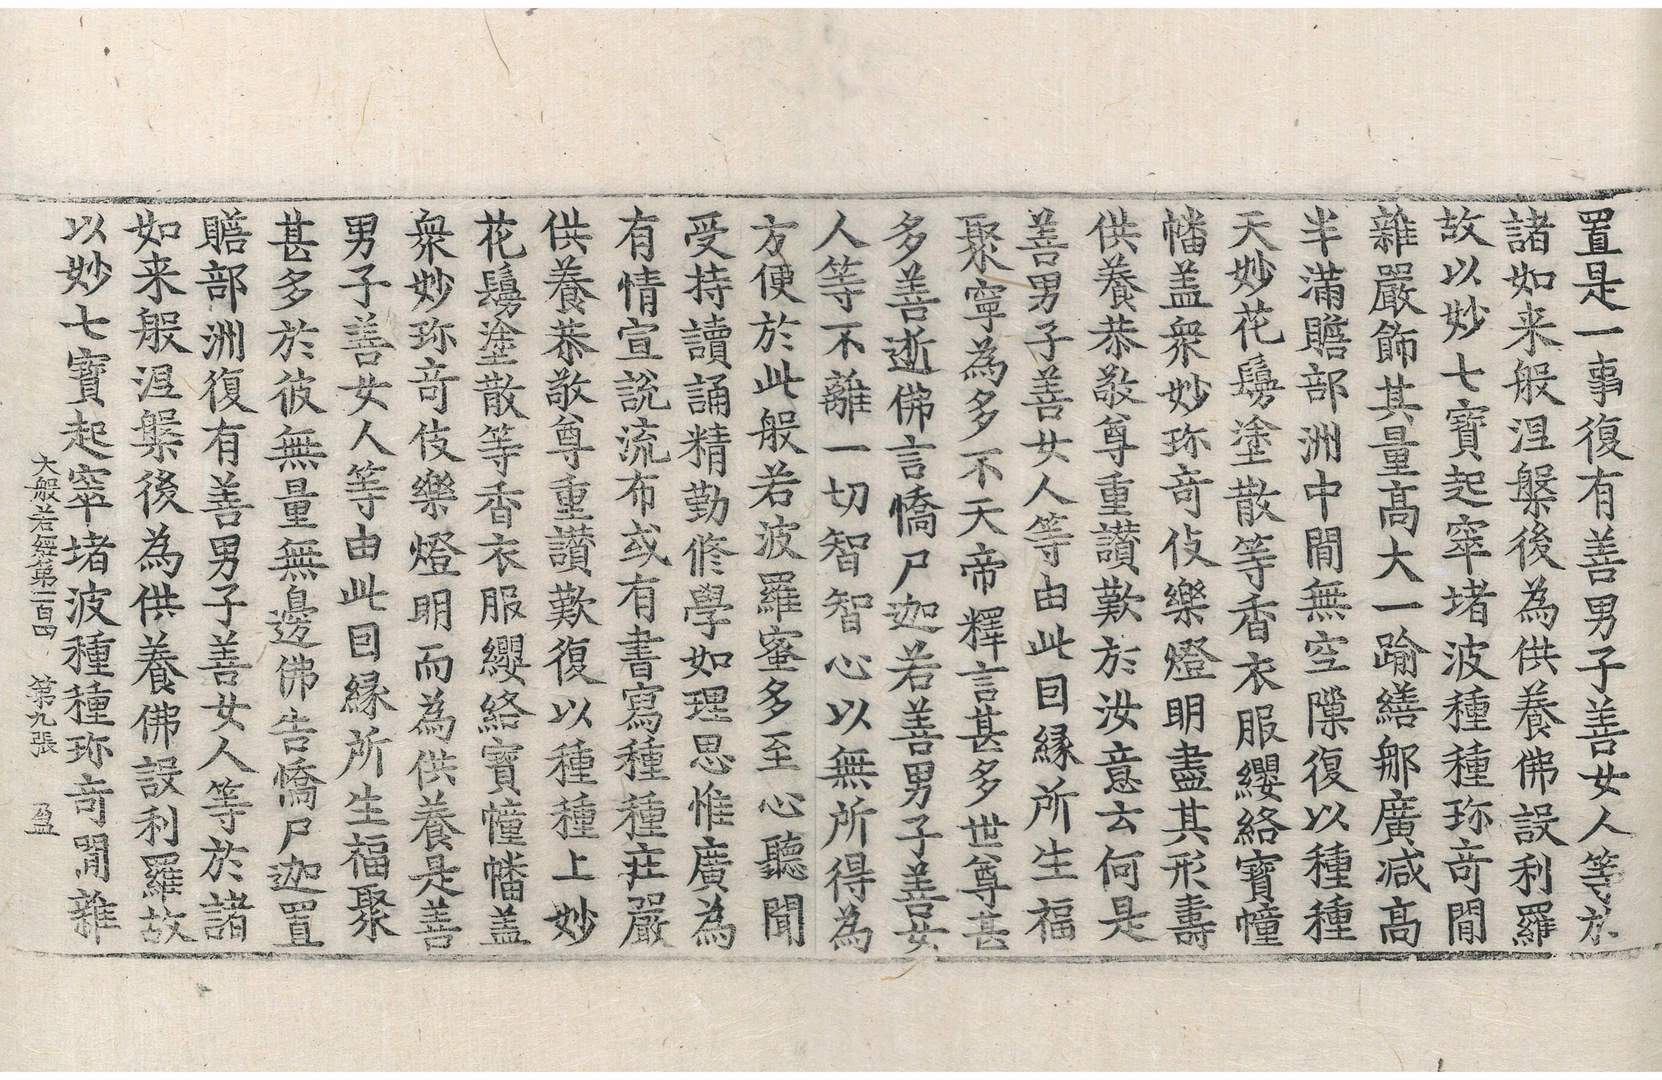 置是一事復有善男子善女人等於
諸如来般涅槃後為供養佛設利羅
故以妙七寶起窣堵波種種珎竒閒
雜嚴飾其量髙大一踰繕那廣减髙
半滿贍部洲中閒無空隙復以種種
天妙花鬘塗散等香衣服纓絡寶幢
幡盖衆妙珎竒伎樂燈明盡其形壽
供養恭敬尊重讃歎於汝意云何是
善男子善女人等由此因縁所生福
聚寧為多不天帝釋言甚多世尊甚
多善逝佛言憍尸迦若善男子善女
人等不離一切智智心以無所得為
方便於此般若波羅蜜多至心聽聞
受持讀誦精勤修學如理思惟廣為
有情宣說流布或有書寫種種庄嚴
供養恭敬尊重讃歎復以種種上妙
花鬘塗散等香衣服纓絡寶幢幡盖
衆妙珎竒伎樂燈明而為供養是善
男子善女人等由此因縁所生福聚
甚多於彼無量無邊佛告憍尸迦置
贍部洲復有善男子善女人等於諸
如来般涅槃後為供養佛設利羅故
以妙七寶起窣堵波種種珎竒閒雜
大般若經第一百四 第九張 盈